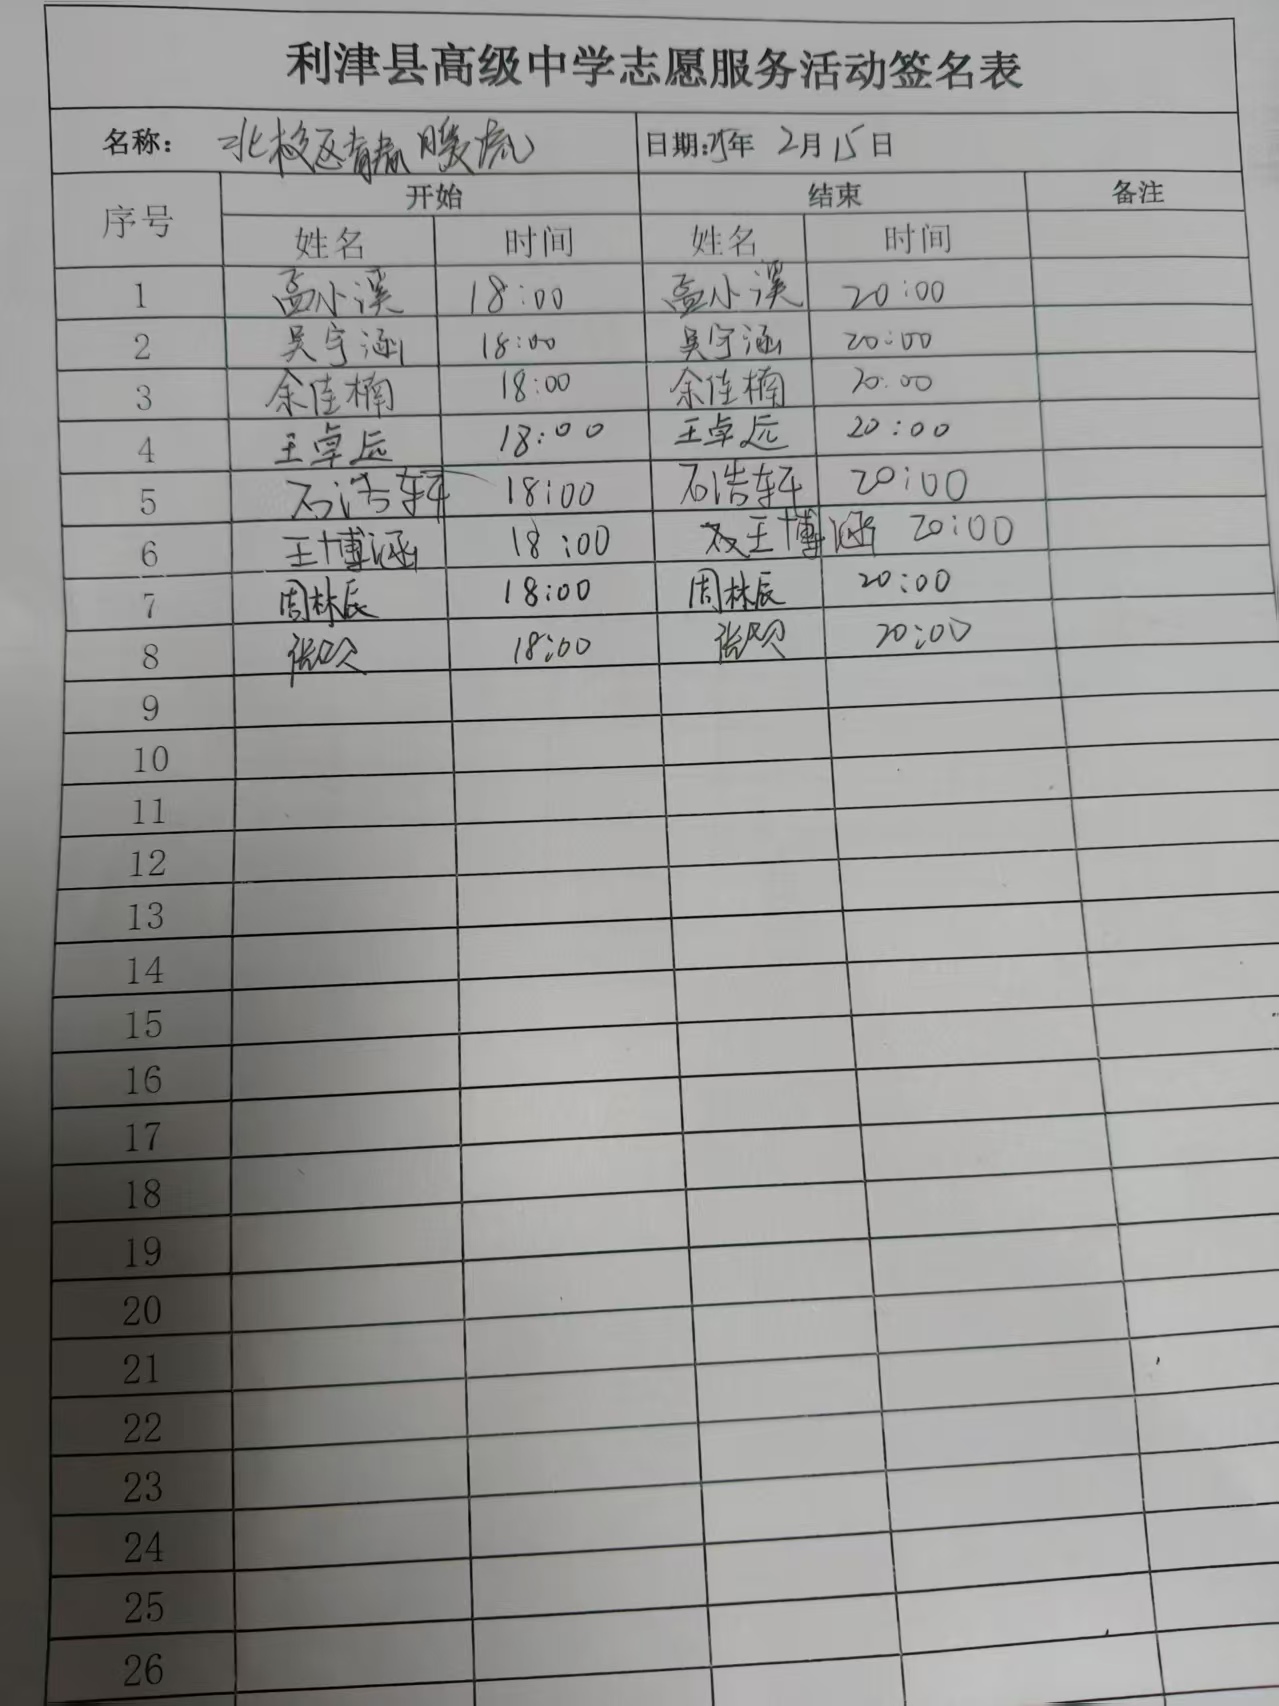 利津县高级中学志愿服务活动签名表
名称: 北校区青春暖流 日期:25年 2月15日
序号 开始 结束 备注
姓名 时间 姓名 时间
1 孟小溪 18:00 孟小溪 20:00
2 吴宇涵 18:00 吴宇涵 20:00
3 余佳楠 18:00 余佳楠 20:00
4 王卓远 18:00 王卓远 20:00
5 石浩轩 18:00 石浩轩 20:00
6 王博涵 18:00 王博涵 20:00
7 周林辰 18:00 周林辰 20:00
8 张 18:00 张 20:00
9
10
11
12
13
14
15
16
17
18
19
20
21
22
23
24
25
26